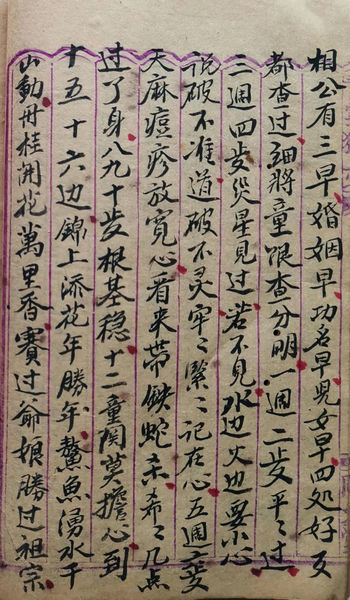 相公有三早婚姻早功名早児女早四処好又
都查过細將童限查分明一週二岁平〻过
三週四岁災星見过若不見水边火边要小心
说破不准道破不灵牢〻緊〻记在心五週六岁
天麻痘疹放寬心看来帶铁蛇杀希〻几点
过了身八九十岁根基穏十二童関莫擔心到
十五十六边錦上添花年勝年鰲魚湧水千
山動丹桂開花萬里香賽过爺娘勝过祖宗